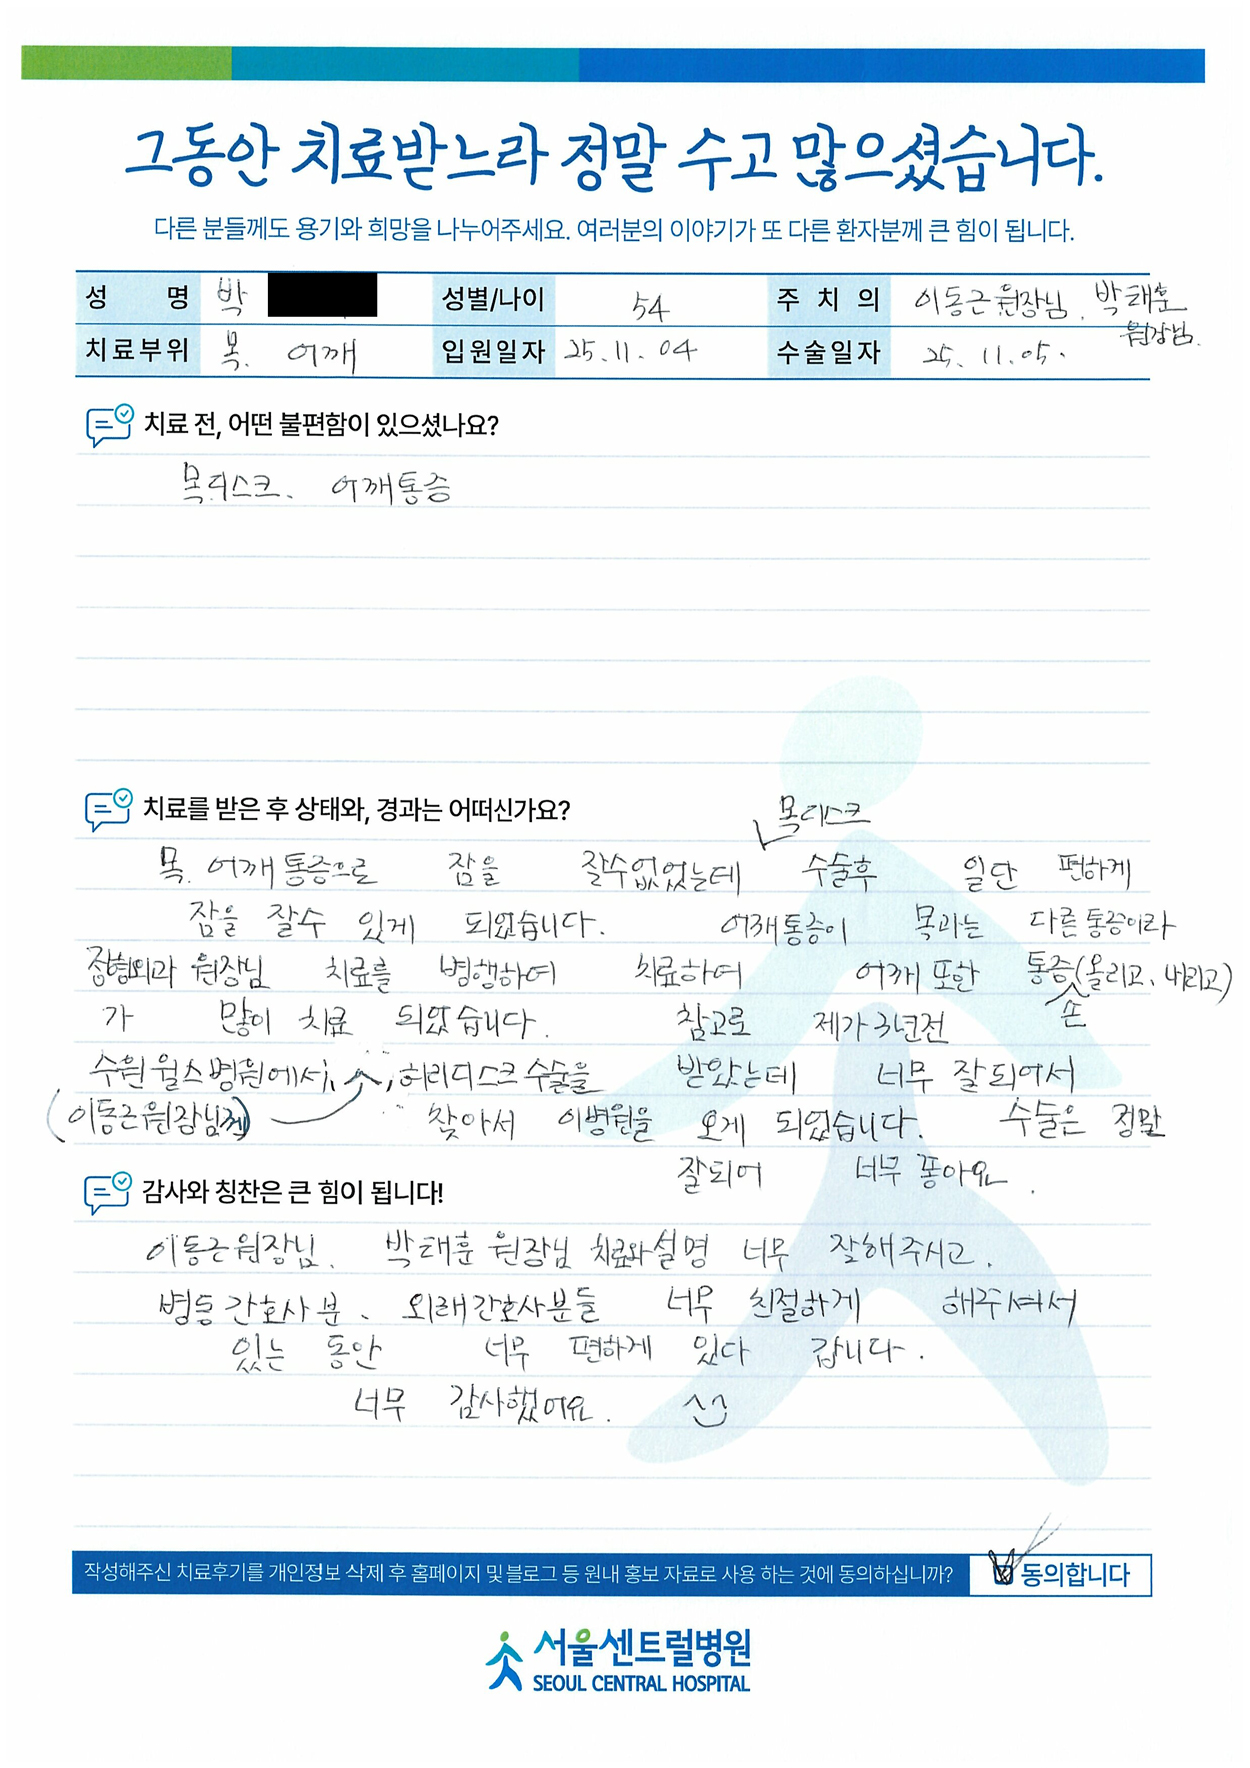 그동안 치료받느라 정말 수고 많으셨습니다.
다른 분들께도 용기와 희망을 나누어주세요. 여러분의 이야기가 또 다른 환자분께 큰 힘이 됩니다.
성 명 박 성별/나이 54 주 치 의 이동근원장님. 박태훈
원장님.
치료부위 목. 어깨 입원일자 25.11.04 수술일자 25.11.05.
치료 전, 어떤 불편함이 있으셨나요?
목디스크. 어깨통증
치료를 받은 후 상태와, 경과는 어떠신가요?
목디스크
목. 어깨통증으로 잠을 잘수없었는데 수술후 일단 편하게
잠을 잘수 있게 되었습니다. 어깨통증이 목과는 다른통증이라
정형외과 원장님 치료를 병행하여 치료하여 어깨 또한 통증(올리고, 내리고)
손
가 많이 치료 되었습니다. 참고로 제가 3년전
수원윌스병원에서, 허리디스크 수술을 받았는데 너무 잘되어서
(이동근원장님께) 찾아서 이병원을 오게 되었습니다. 수술은 정말
잘되어 너무 좋아요.
감사와 칭찬은 큰 힘이 됩니다!
이동근원장님. 박태훈 원장님 치료와설명 너무 잘해주시고.
병동간호사분. 외래간호사분들 너무 친절하게 해주셔서
있는 동안 너무 편하게 있다 갑니다.
너무 감사했어요.
작성해주신 치료후기를 개인정보 삭제 후 홈페이지 및 블로그 등 원내 홍보 자료로 사용 하는 것에 동의하십니까? 동의합니다
서울센트럴병원
SEOUL CENTRAL HOSPITAL